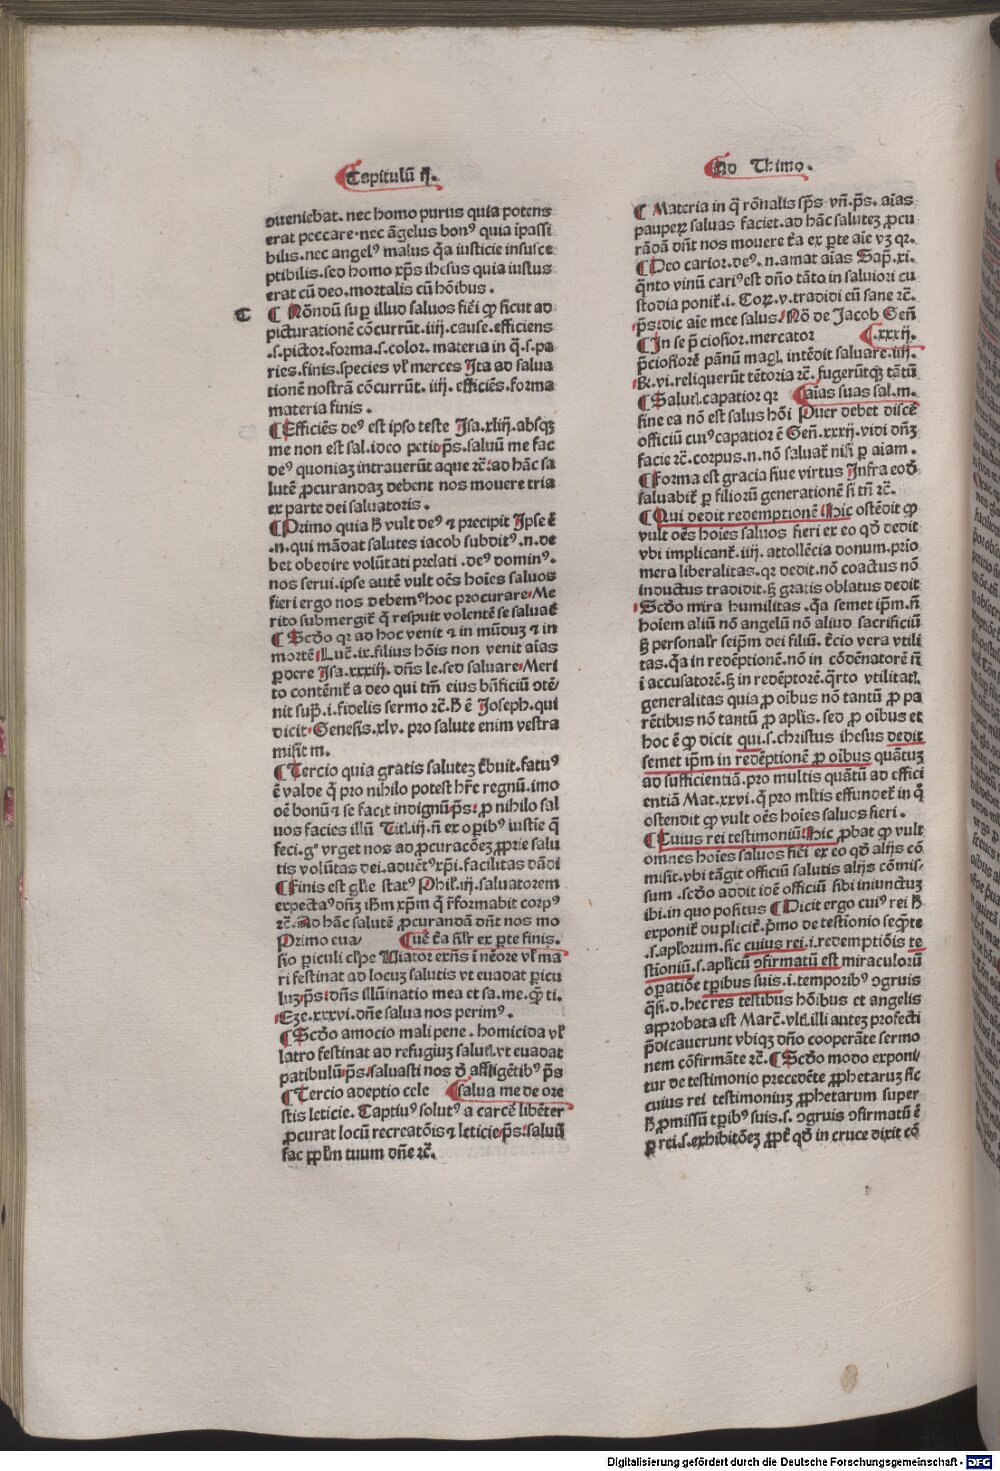 Capitulū ij.
Ad Thimo.
queniebat. nec homo purus quia potens
erat peccare. nec āgelus bonꝰ quia ipassi
bilis. nec angelꝰ malus q̄a iusticie insusce
ptibilis. sed homo xp̄s ihesus quia iustus
erat cū deo. mortalis cū hōibus.
C
¶ Nōndū suꝑ illud saluos fieri ꝙ sicut ad
picturationē cōcurrūt. iiij. cause. efficiens
.s. pictor. forma .s. color. materia in q̄ .s. pa
ries. finis. species vl̕ merces Ita ad salua
tionē nostrā cōcurrūt. iiij. efficiēs. forma
materia finis.
¶ Efficiēs deꝰ est ipso teste Isa. xliij. absqꝫ
me non est sal. ideo petit ps. saluū me fac
deꝰ quoniaꝫ intrauerūt aque ⁊c̄. ad hāc sa
lutē ꝓcurandaꝫ debent nos mouere tria
ex parte dei saluatoris.
¶ Primo quia hꝰ vult deꝰ ⁊ precipit Ipse ē
.n. qui mādat salutes iacob subditꝰ .n. de
bet obedire volūtati prelati. deꝰ dominꝰ.
nos serui. ipse autē vult oēs hoies saluos
fieri ergo nos debemꝰ hoc procurare. Me
rito submergit̄ q̄ respuit volentē se saluaē
¶ Scd̄o qr ad hoc venit ⁊ in mūduꝫ ⁊ in
mortē Luc̄. ix. filius hōis non venit aīas
ꝑdere Isa. xxxiij. dn̄s le. sed saluare. Meri
to contēnit̄ a deo qui tm̄ eius bn̄ficiū ꝯtē/
nit sup̄. i. fidelis sermo ⁊c̄. hꝰ ē Joseph. qui
dicit. Genesis. xlv. pro salute enim vestra
misit m.
¶ Tercio quia gratis salutez t̄buit. fatuꝰ
ē valde q̄ pro nihilo potest hr̄e regnū. imo
oē bonū ⁊ se facit indignū. ps. ꝓ nihilo sal
uos facies illū Tit̄. iij. n̄ ex oꝑibꝰ iustīe q̄
feci. gͦ vrget nos ad ꝓcuracōeꝫ ꝓprie salu
tis volūtas dei. aduētꝰ xp̄i. facilitas dādi
¶ Finis est gl̄ie statꝰ Phil̕. iij. saluatorem
expectaꝰ dn̄ꝫ ih̄m xp̄m q̄ r̄formabit corpꝰ
⁊c̄. Ad hāc salutē ꝓcurandā dn̄t nos mo
Primo eua/ ¶ uē t̄a sil̕r ex ꝑte finis.
sio ꝑiculi cl̄pe Viator exn̄s ī nēore vl̕ ma
ri festinat ad locuꝫ salutis vt euadat ꝑicu
luꝫ. ps. dn̄s illūinatio mea et sa. me. q̄ ti.
Eze. xxxvi. dn̄e salua nos perimꝰ.
¶ Scd̄o amocio mali pene. homicida vl̕
latro festinat ad refugiuꝫ salut̄. vt euadat
patibulū. ps. saluasti nos d̄ affligētibꝰ ps
¶ Tercio adeptio cele ¶ salua me de ore
stis leticie. Captiuꝰ solutꝰ a carcē libēter
ꝓcurat locū recreatōis ⁊ leticie. ps. saluū
fac ppl̄m tuum dn̄e ⁊c̄.
¶ Materia in q̄ rōnalis sp̄s. vn̄. ps. aīas
pauperꝝ saluas faciet. ad hāc saluteꝫ ꝓcu
rādā dn̄t nos mouere t̄a ex ꝑte aīe vꝫ qr.
¶ Deo carior. deꝰ. n. amat aīas Sap̄. xi.
q̄nto vinū cariꝰ est dn̄o tāto in saluiori cu
stodia ponit̄. i. Coꝝ. v. tradidi eū sane ⁊c̄.
ps. dic aīe mee salus. Nō de Jacob Gen̄
¶ In se p̄ciosior. mercator ¶ .xxxij.
p̄ciosiorē pānū magl̄. intēdit saluare. iiij.
R̄. vi. reliquerūt tētoria ⁊c̄. fugerūtqꝫ tātū
¶ Salut̄. capatior qr ¶ aīas suas sal. m.
fine ea nō est salus hōi Puer debet discē
officiū cuiꝰ capatior ē Gen̄. xxxij. vidi dn̄ꝫ
facie ⁊c̄. corpus. n. nō saluat̄ nisi ꝑ aīam.
¶ Forma est gracia siue virtus Infra eod̄
saluabit̄ ꝑ filiorū generationē si tn̄ ⁊c̄.
¶ Qui dedit redemptionē Hic ostēdit ꝙ
vult oēs hoies saluos fieri ex eo qd̄ dedit
vbi implicant̄. iiij. attollēcia donum. prio
mera liberalitas. qr dedit. nō coactus nō
inductus tradidit. sꝫ gratis oblatus dedit
Scd̄o mira humilitas. q̄a semet ip̄m. n̄
hoīem aliū nō angelū nō aliud sacrificiū
sꝫ personal̕r seip̄m dei filiū. t̄cio vera vtili
tas. q̄a in redēptionē. nō in cōdēnatorē n̄
i accusatorē. sꝫ in redēptorē. q̄rto vtilitat̄.
generalitas quia ꝓ oībus nō tantū ꝓ pa
rētibus nō tantū ꝓ apl̄is. sed ꝓ oībus et
hoc ē ꝙ dicit qui .s. christus ihesus dedit
semet ip̄m in redēptionē ꝓ oībus quātuꝫ
ad sufficientiā. pro multis quātū ad effici
entiā Mat. xxvi. q̄ pro ml̄tis effundet̄ in q̄
ostendit ꝙ vult oēs hoies saluos fieri.
¶ Cuius rei testimoniū Hic ꝓbat ꝙ vult
omnes hoies saluos fieri ex eo qd̄ alijs cō
misit. vbi tāgit officiū salutis alijs cōmis/
sum. scd̄o addit idē officiū sibi iniunctuꝫ
ibi. in quo positus ¶ Dicit ergo cuiꝰ rei hꝰ
exponit̄ duplicit̄. p̄mo de testionio seq̄nte
.s. aplorum. sic cuius rei .i. redemptiōis te
stioniū .s. aplicū ꝯfirmatū est miraculorū
oꝑatiōe tꝑibus suis .i. temporibꝰ ꝯgruis
q̄si. d. hec res testibus hōibus et angelis
approbata est Marc̄. vlt̄. illi autez profecti
p̄dicauerunt vbiqꝫ dn̄o cooperāte sermo
nem cōfirmāte ⁊c̄. ¶ Scd̄o modo exponi
tur de testimonio precedēte ꝓphetaruꝫ sic
cuius rei testimoniuꝫ ꝓphetarum super
hꝰ ꝓmissū tꝑibꝰ suis. s. ꝯgruis ꝯfirmatū ē
ꝑ rei .s. exhibitōeꝫ ꝓpt̄ qd̄ in cruce dixit cō
Digitalisierung gefördert durch die Deutsche Forschungsgemeinschaft - DFG